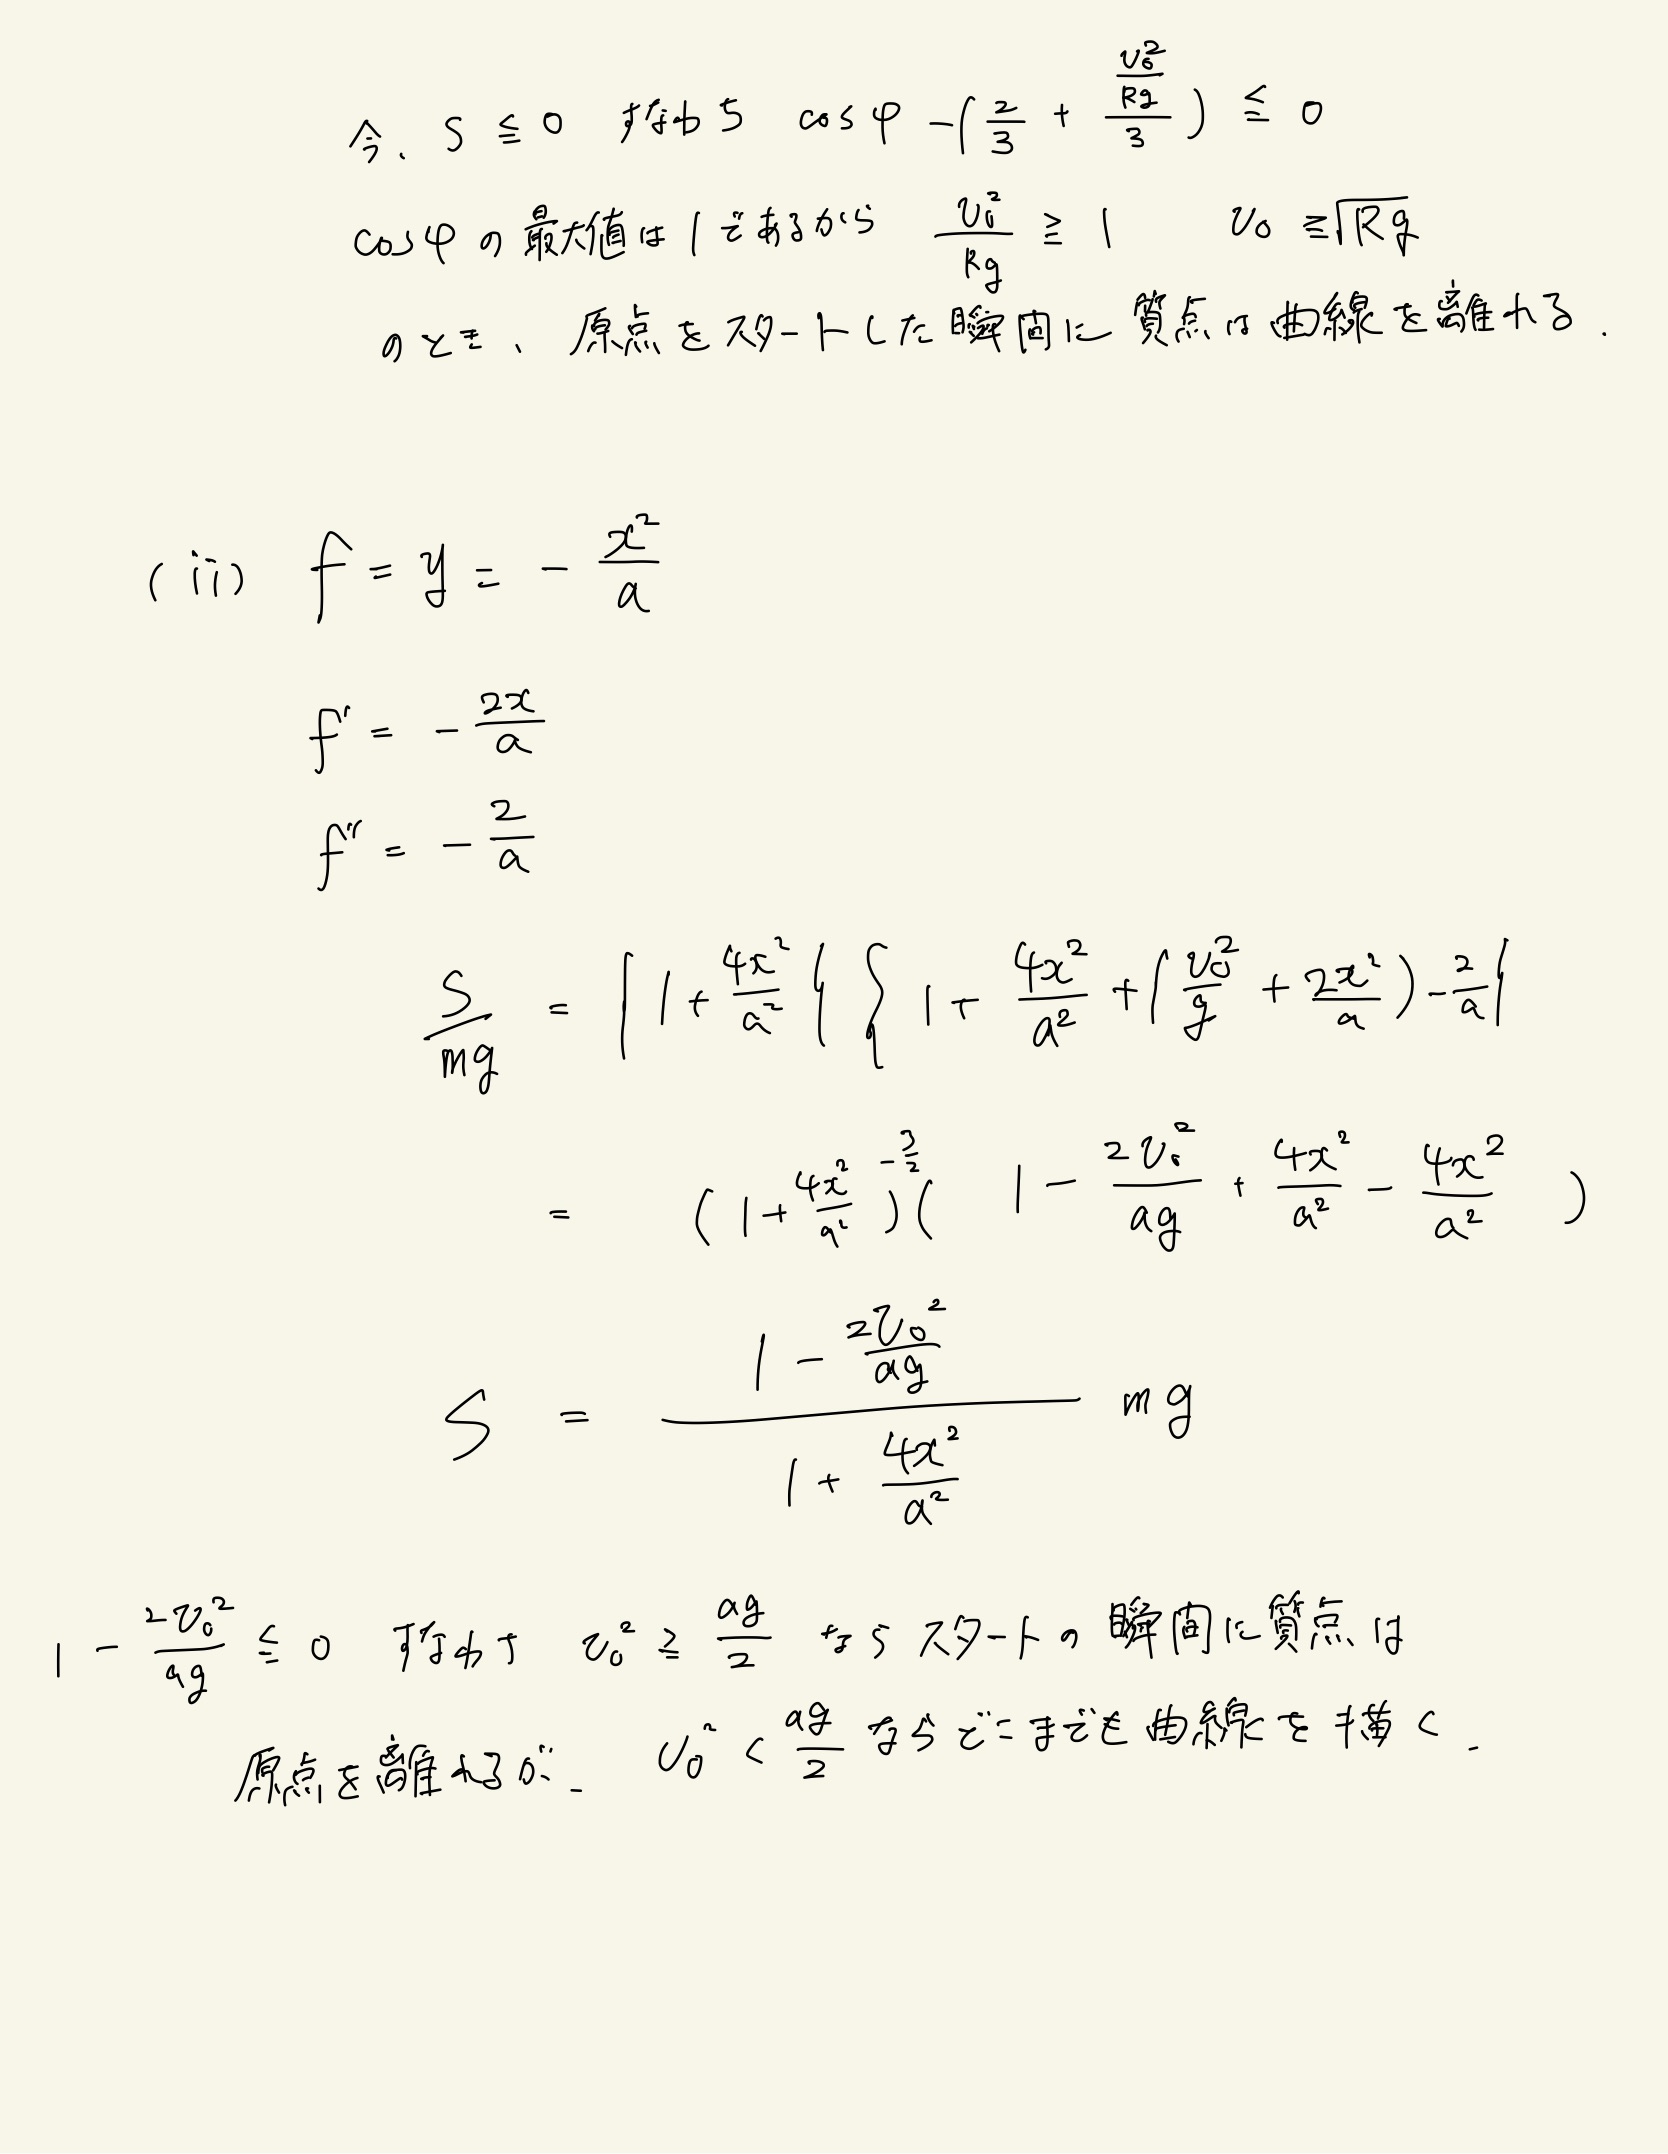 今、S ≦ 0 すなわち cosφ -(2/3 + (v₀²/Rg)/3) ≦ 0
cosφ の最大値は 1 であるから v₀²/Rg ≧ 1 v₀ ≧ √Rg
のとき、原点をスタートした瞬間に質点は曲線を離れる.
(ii) f = y = - x²/a
f' = - 2x/a
f'' = - 2/a
S/mg = { 1 + 4x²/a² } { 1 + 4x²/a² + (v₀²/g + 2x²/a) - 2/a }
= (1 + 4x²/a²)^(-3/2) ( 1 - 2v₀²/ag + 4x²/a² - 4x²/a² )
S = (1 - 2v₀²/ag)/(1 + 4x²/a²) mg
1 - 2v₀²/ag ≦ 0 すなわち v₀² ≧ ag/2 ならスタートの瞬間に質点は
原点を離れるが. v₀² < ag/2 ならどこまでも曲線を描く.